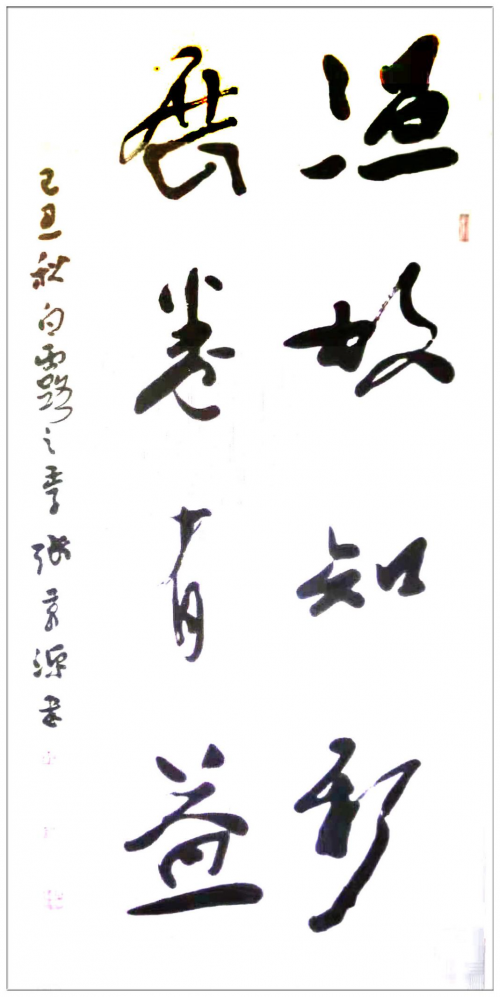 温故知新
展卷有益
己丑秋白露之季张景源书